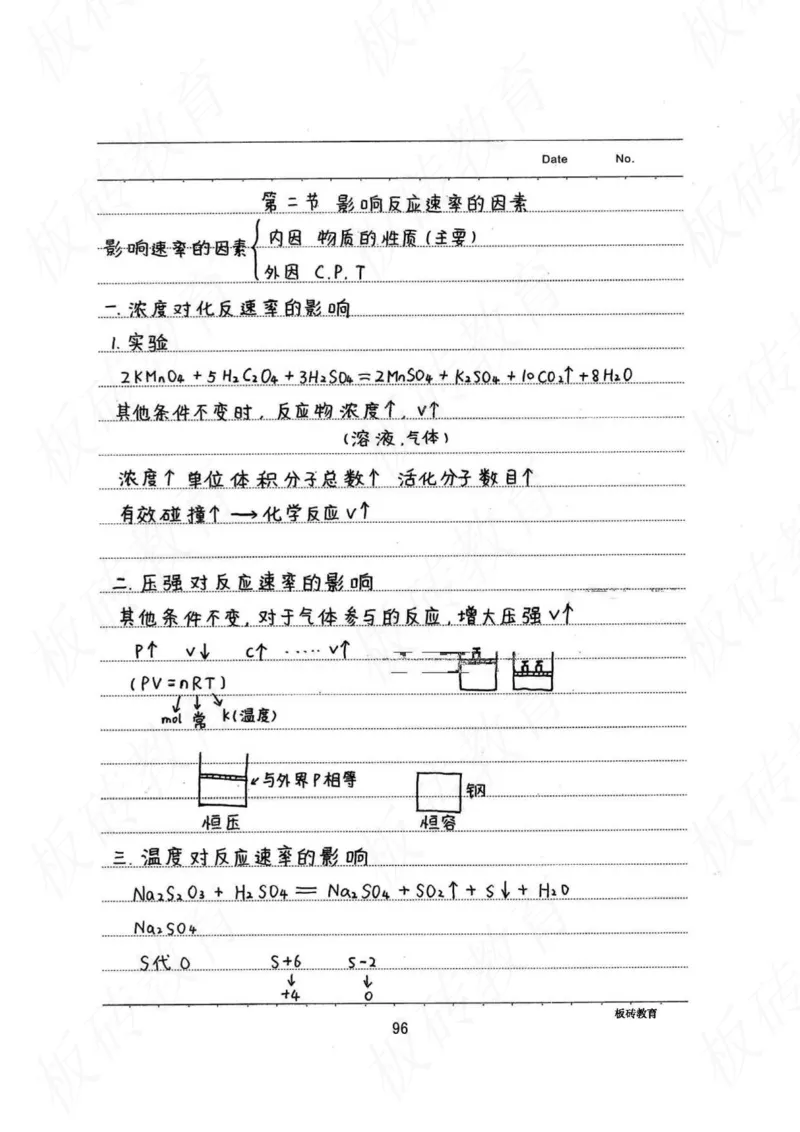 Date No.
第二节 影响反应速率的因素
影响速率的因素
内因 物质的性质(主要)
外因 C.P.T
一.浓度对化反速率的影响
1.实验
2KMnO4+5H2C2O4+3H2SO4=2MnSO4+K2SO4+10CO2↑+8H2O
其他条件不变时,反应物浓度↑,V↑
(溶液.气体)
浓度↑ 单位体积分子总数↑ 活化分子数目↑
有效碰撞↑→化学反应V↑
二.压强对反应速率的影响
其他条件不变,对于气体参与的反应,增大压强V↑
P↑ V↓ C↑ ····· V↑
(PV=nRT)
↓ ↓ ↘
mol 常 K(温度)
↙与外界P相等
钢
恒压 恒容
三.温度对反应速率的影响
Na2S2O3+H2SO4=Na2SO4+SO2↑+S↓+H2O
Na2SO4
S代O S+6 S-2
↓ ↓
+4 0
板砖教育
96